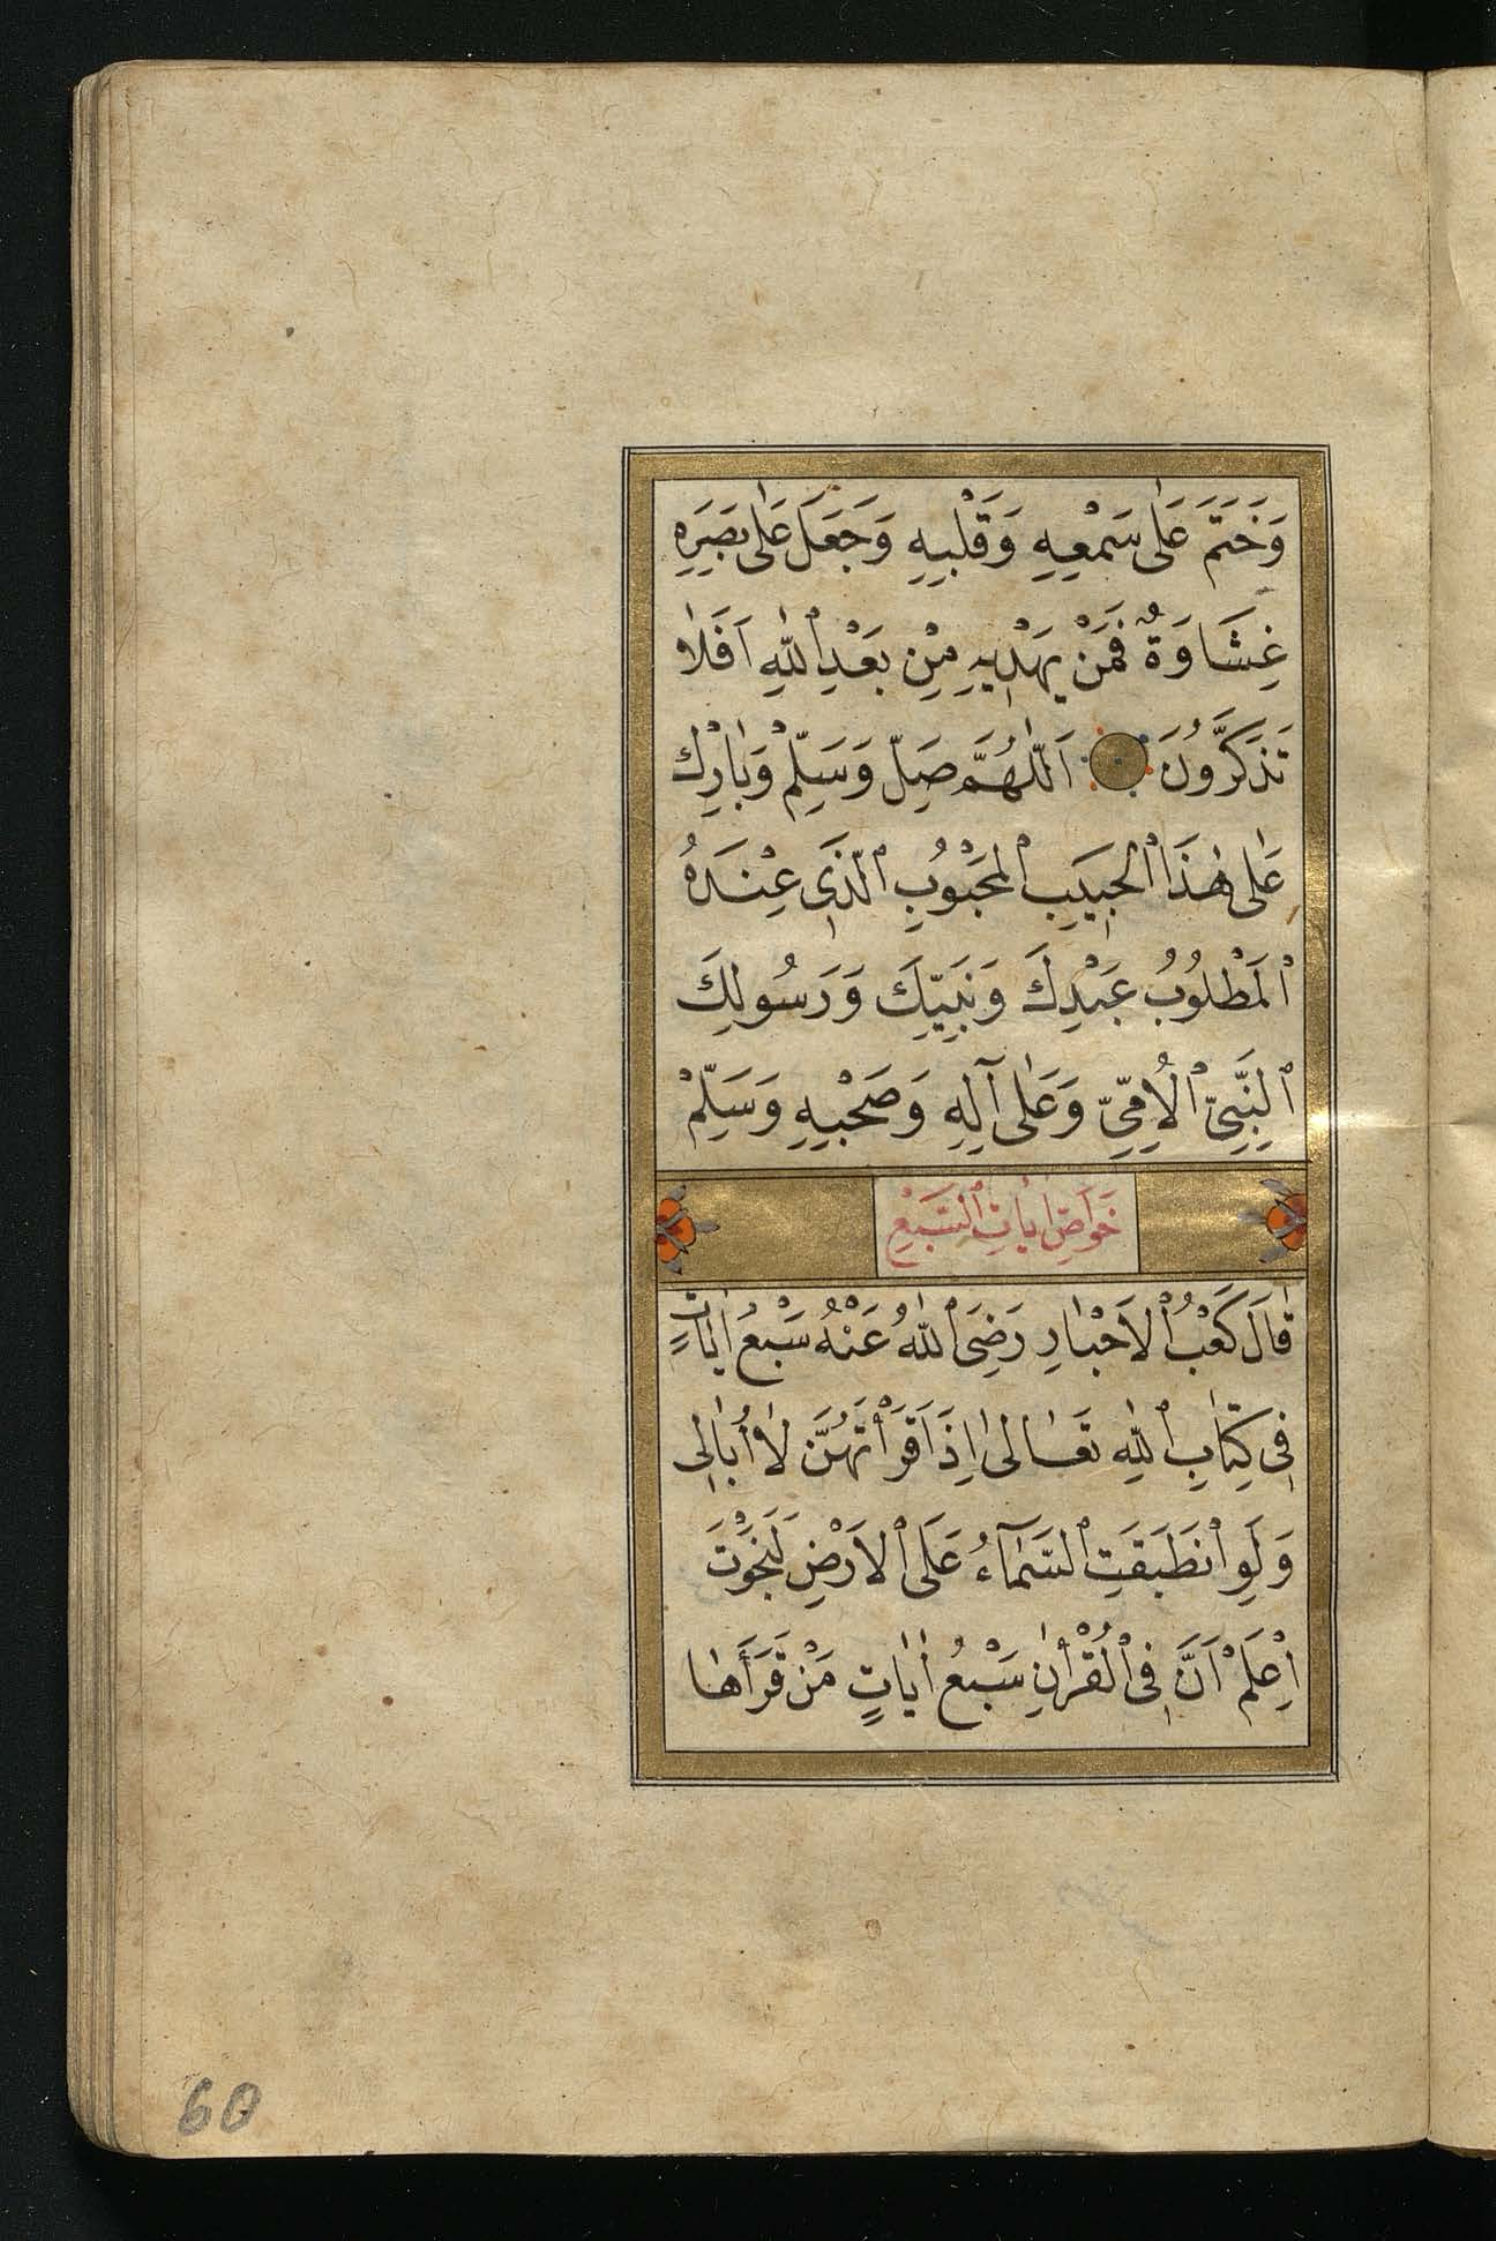 وَخَتَمَ عَلٰى سَمْعِهِ وَقَلْبِهِ وَجَعَلَ عَلٰى بَصَرِهِ
غِشَاوَةً فَمَنْ يَهْدِيهِ مِنْ بَعْدِ اللّٰهِ اَفَلَا
تَذَكَّرُونَ اَللّٰهُمَّ صَلِّ وَسَلِّمْ وَبَارِكْ
عَلٰى هٰذَا الْحَبِيبِ الْمَحْبُوبِ الَّذِى عِنْدَهُ
الْمَطْلُوبُ عَبْدِكَ وَنَبِيِّكَ وَرَسُولِكَ
النَّبِىِّ الْاُمِّىِّ وَعَلٰى آلِهِ وَصَحْبِهِ وَسَلِّمْ
خَوَاصِ اٰيَاتِ السَّبْعِ
قَالَ كَعْبُ الْاَحْبَارِ رَضِىَ اللّٰهُ عَنْهُ سَبْعُ اٰيَاتٍ
فِى كِتَابِ اللّٰهِ تَعَالٰى اِذَا قَرَأْتَهُنَّ لَا أُبَالِى
وَلَوِ انْطَبَقَتِ السَّمَآءُ عَلَى الْاَرْضِ لَنَجَوْتَ
اِعْلَمْ اَنَّ فِى الْقُرْاٰنِ سَبْعُ اٰيَاتٍ مَنْ قَرَأَهَا
60